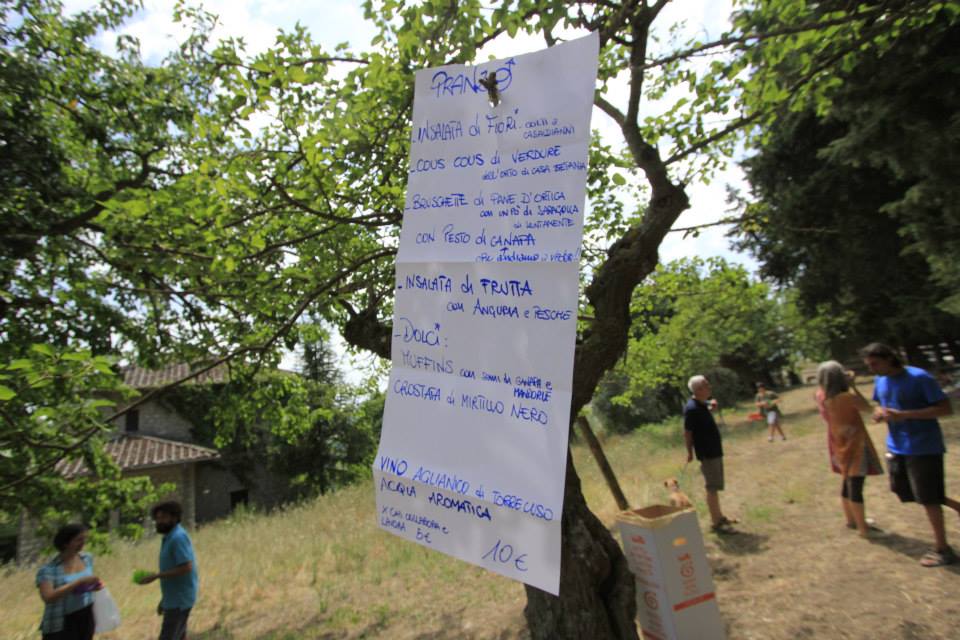 PRANZO
- INSALATA di FIORI -
CASALDIANNI
- COUS COUS di VERDURE
dell'ORTO di CASA BETANIA
- BRUSCHETTE di PANE D'ORTICA
con un Pò di SARAGOLLA
di LENTAMENTE
CON PESTO di CANAPA
che andiamo a vedere!
- INSALATA di FRUTTA
con ANGURIA e PESCHE
- DOLCI:
MUFFINS con semi di CANAPA e
MANDORLE
CROSTATA di MIRTILLO NERO
VINO AGLIANICO di TORRECUSO
ACQUA AROMATICA
X CHI COLLABORA e
LAVORA 5€
10€